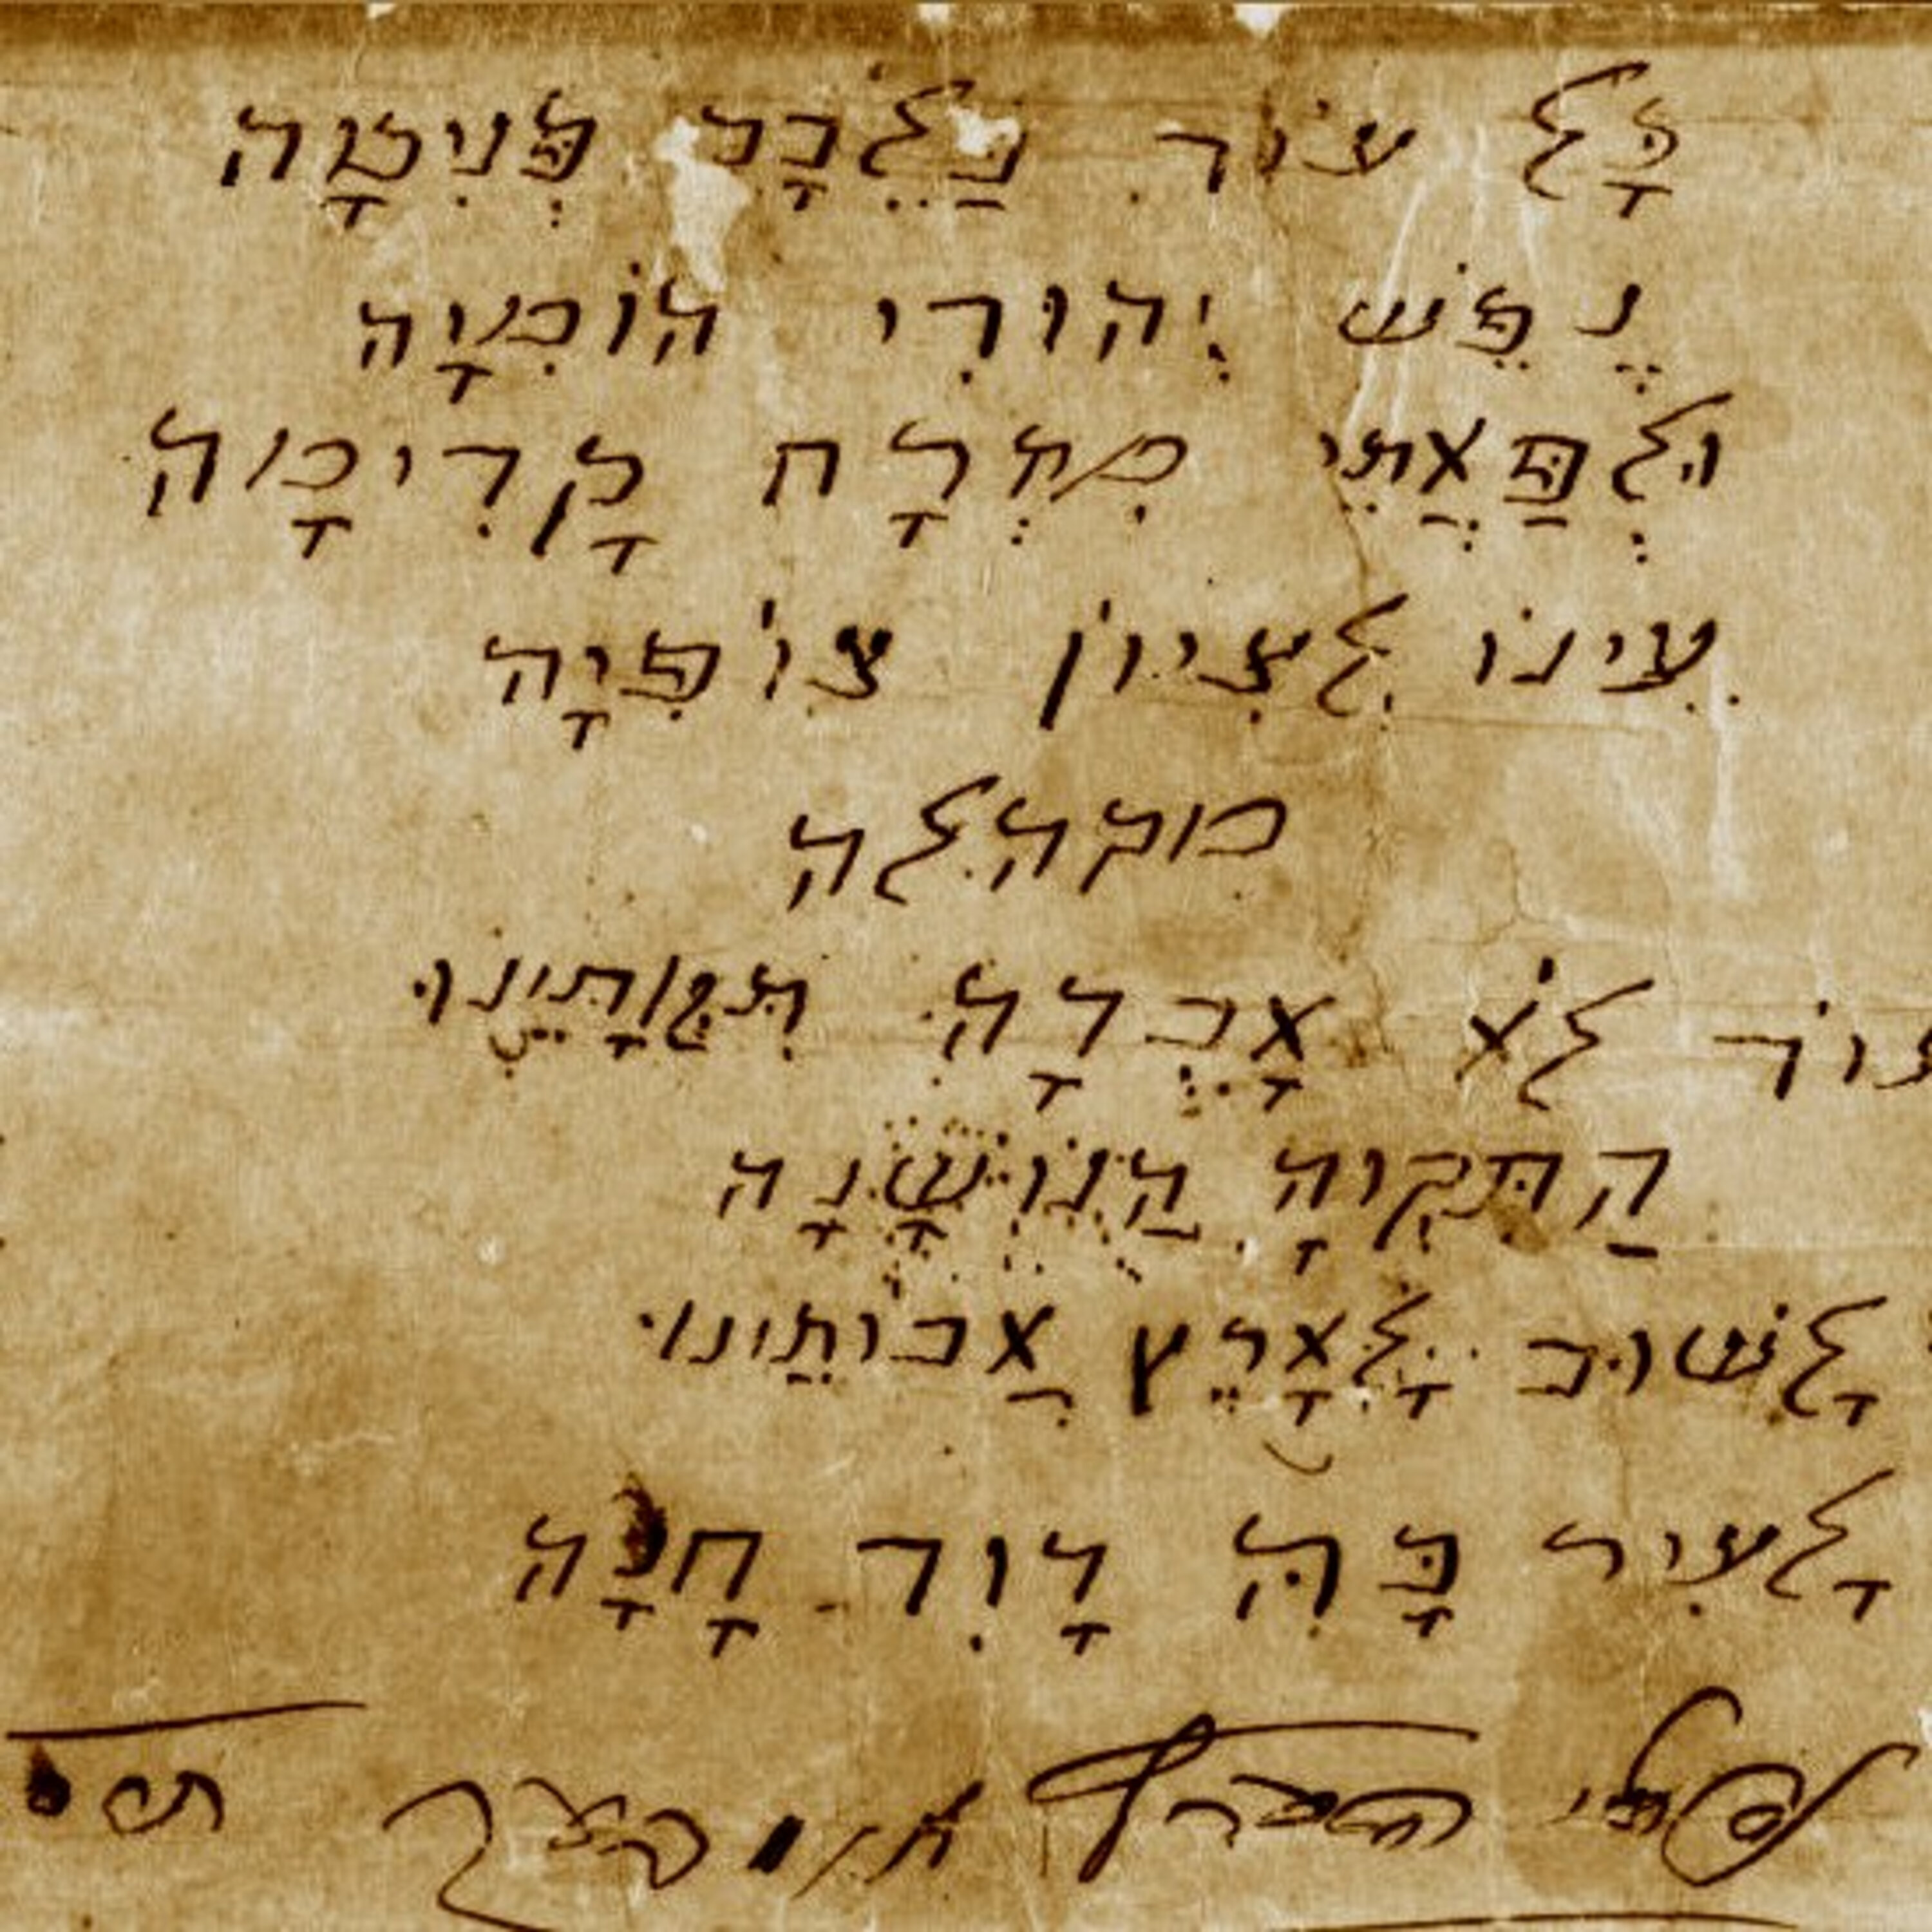 כָּל עוֹד בַּלֵּבָב פְּנִימָה
נֶפֶשׁ יְהוּדִי הוֹמִיָּה
וּלְפַאֲתֵי מִזְרָח קָדִימָה
עֵינוֹ לְצִיּוֹן צוֹפִיָּה
מקהלה
עוֹד לֹא אָבְדָה תִּקְוָתֵינוּ
הַתִּקְוָה הַנּוֹשָׁנָה
לָשׁוּב לְאֶרֶץ אֲבוֹתֵינוּ
לָעִיר בָּהּ דָוִד חָנָה
נפתלי הערץ אימבער